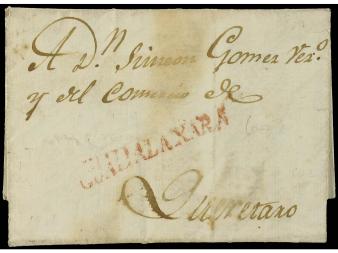 A Dn. Simon Gomez Vezo.
y del Comercio de
GUADALAXARA
Queretaro